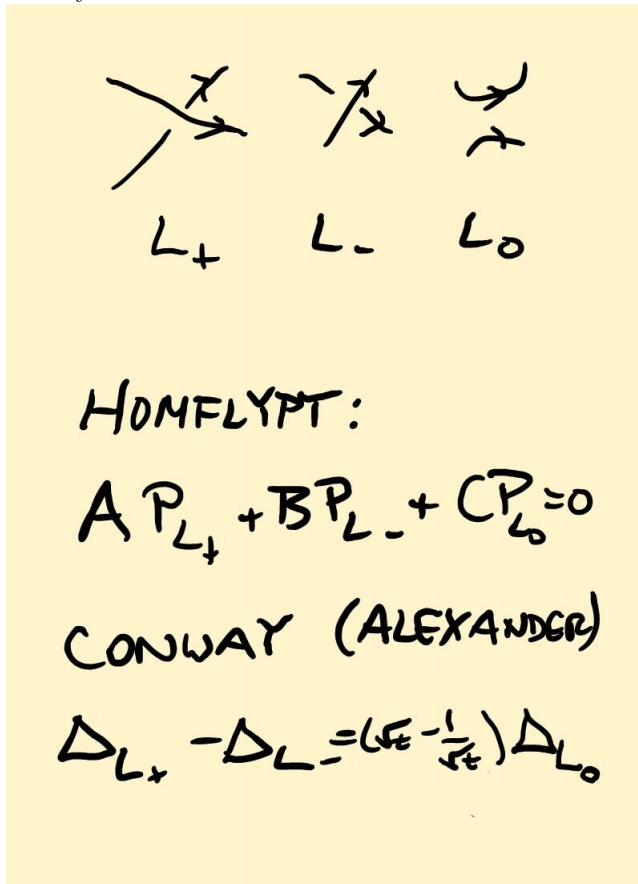 L₊ L₋ L₀
HOMFLYPT:
A P_{L₊} + B P_{L₋} + C P_{L₀} = 0
CONWAY (ALEXANDER)
Δ_{L₊} - Δ_{L₋} = (√t - 1/√t) Δ_{L₀}